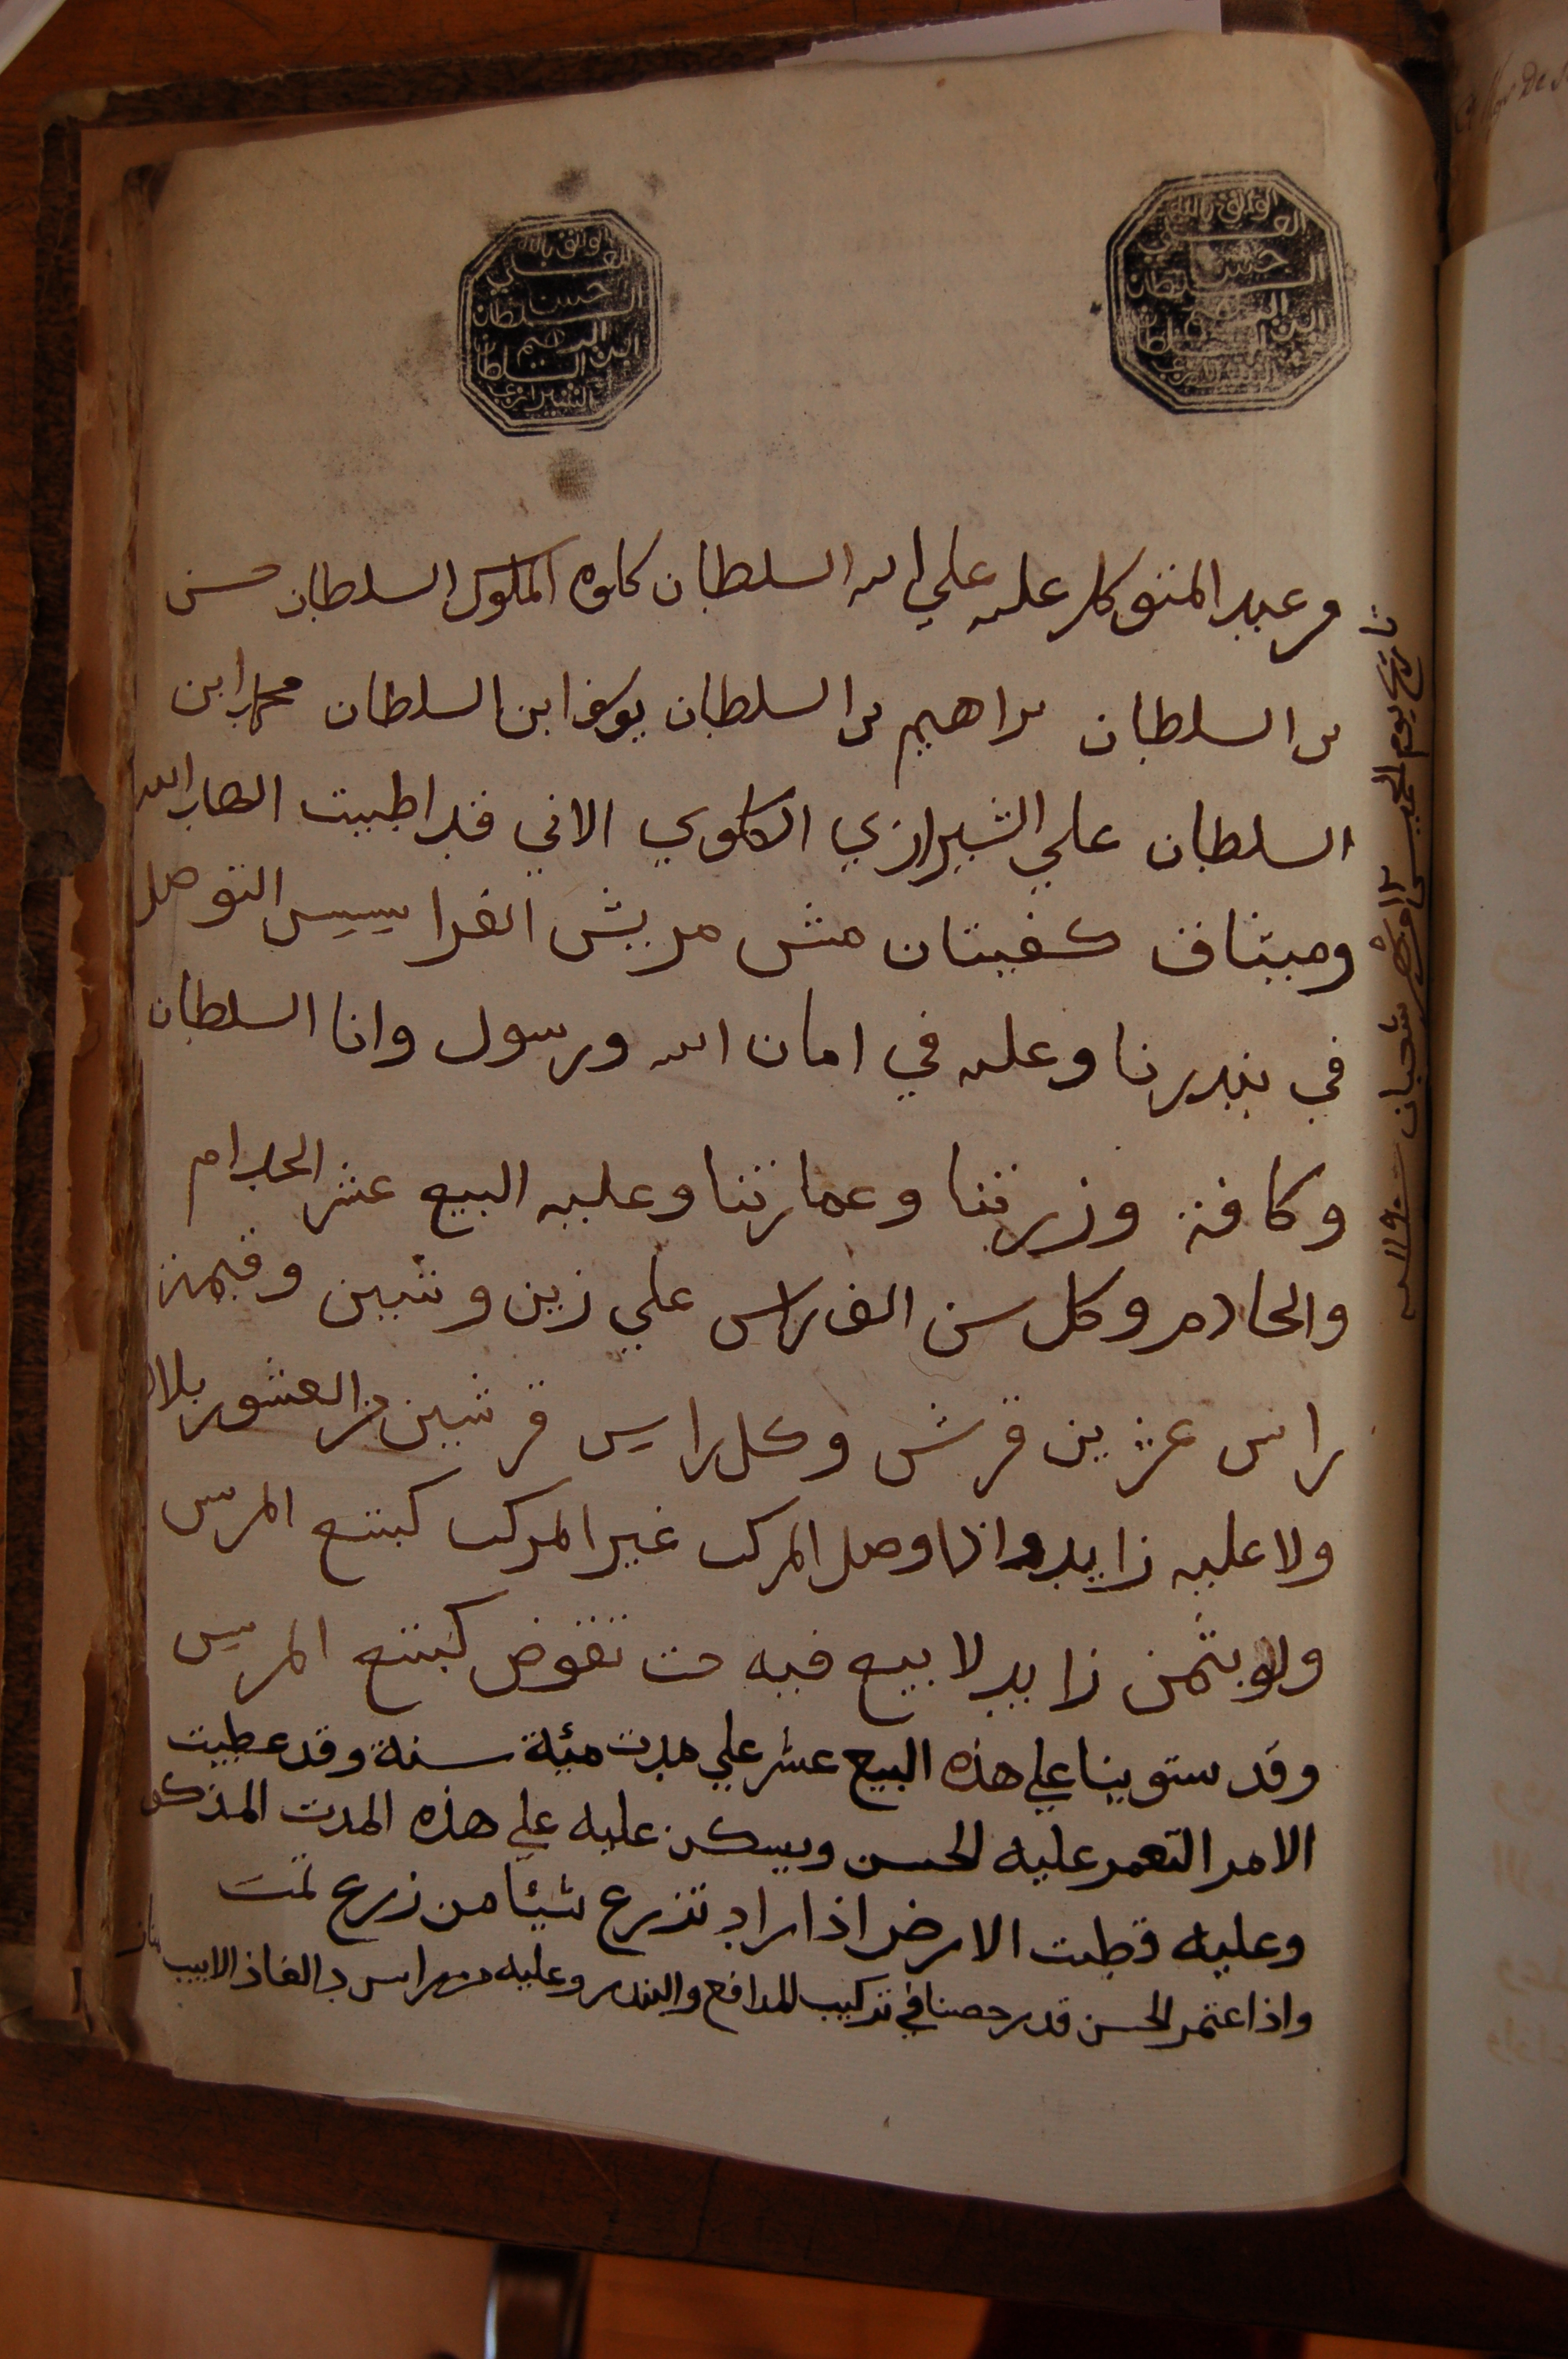 الواثق بالله
العلي
حسن
السلطان
ابن السلطان
الشيرازي
الواثق بالله
العلي
حسن
السلطان
ابن السلطان
الشيرازي
عبد المتوكل عليه علي الله السلطان كلوه الملوك السلطان حسن
بن السلطان براهيم بن السلطان يوسف ابن السلطان محمد ابن
السلطان علي الشيرازي الكلوي الاني قد اطبيت العهد الله
وميثاق كفيتان مش مريش الفراسيس التوصل
في بندرنا وعليه في امان الله ورسول وانا السلطان
وكافة وزرتنا وعمارتنا وعليه البيع عشر الحدام
والحادم وكل سن الف راس علي زين وشين وقيمة
راس عشرين قرش وكل راس قرشين من العشور بلا
ولا عليه زايد واذا وصل المركب غير المركب كبتع المريس
ولو بثمن زايد لا بيع فيه حت تقوض كبتع المريس
وقد ستوينا علي هذه البيع عشر علي مدت مئة سنة وقد عطيت
الامر التعمر عليه الحسن ويسكن عليه علي هذه المدت المذكو
وعليه قطبت الارض اذا راد تزرع شيئا من زرع تمت
واذا عتمر الحسن قد رحصنا في تركيب المدافع والبندر وعليه راس
تاريخ يوم الخميس شهر شعبان سنة ١١٩٠